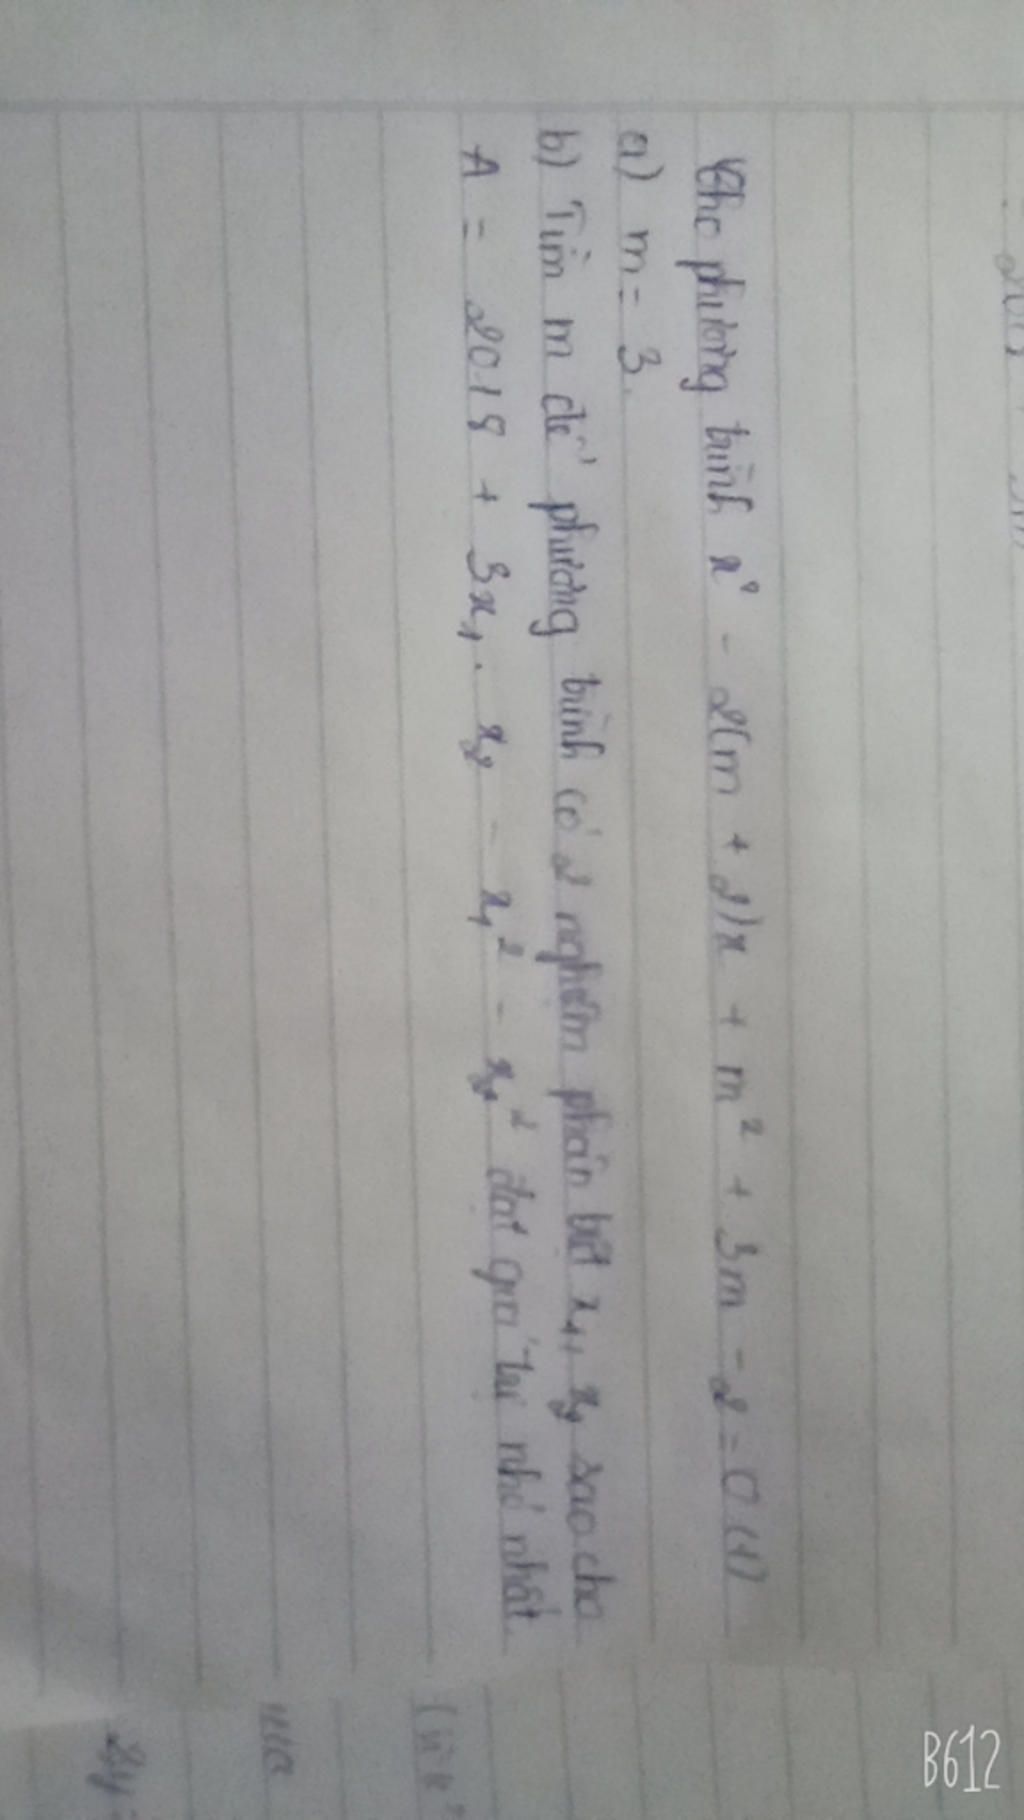 Cho phương trình x² - 2(m + 2)x + m² + 3m - 2 = 0 (1)
a) m = 3.
b) Tìm m để phương trình có 2 nghiệm phân biệt x₁, x₂ sao cho
A = 2018 + 3x₁. x₂ - x₁² - x₂² đạt giá trị nhỏ nhất.
B612